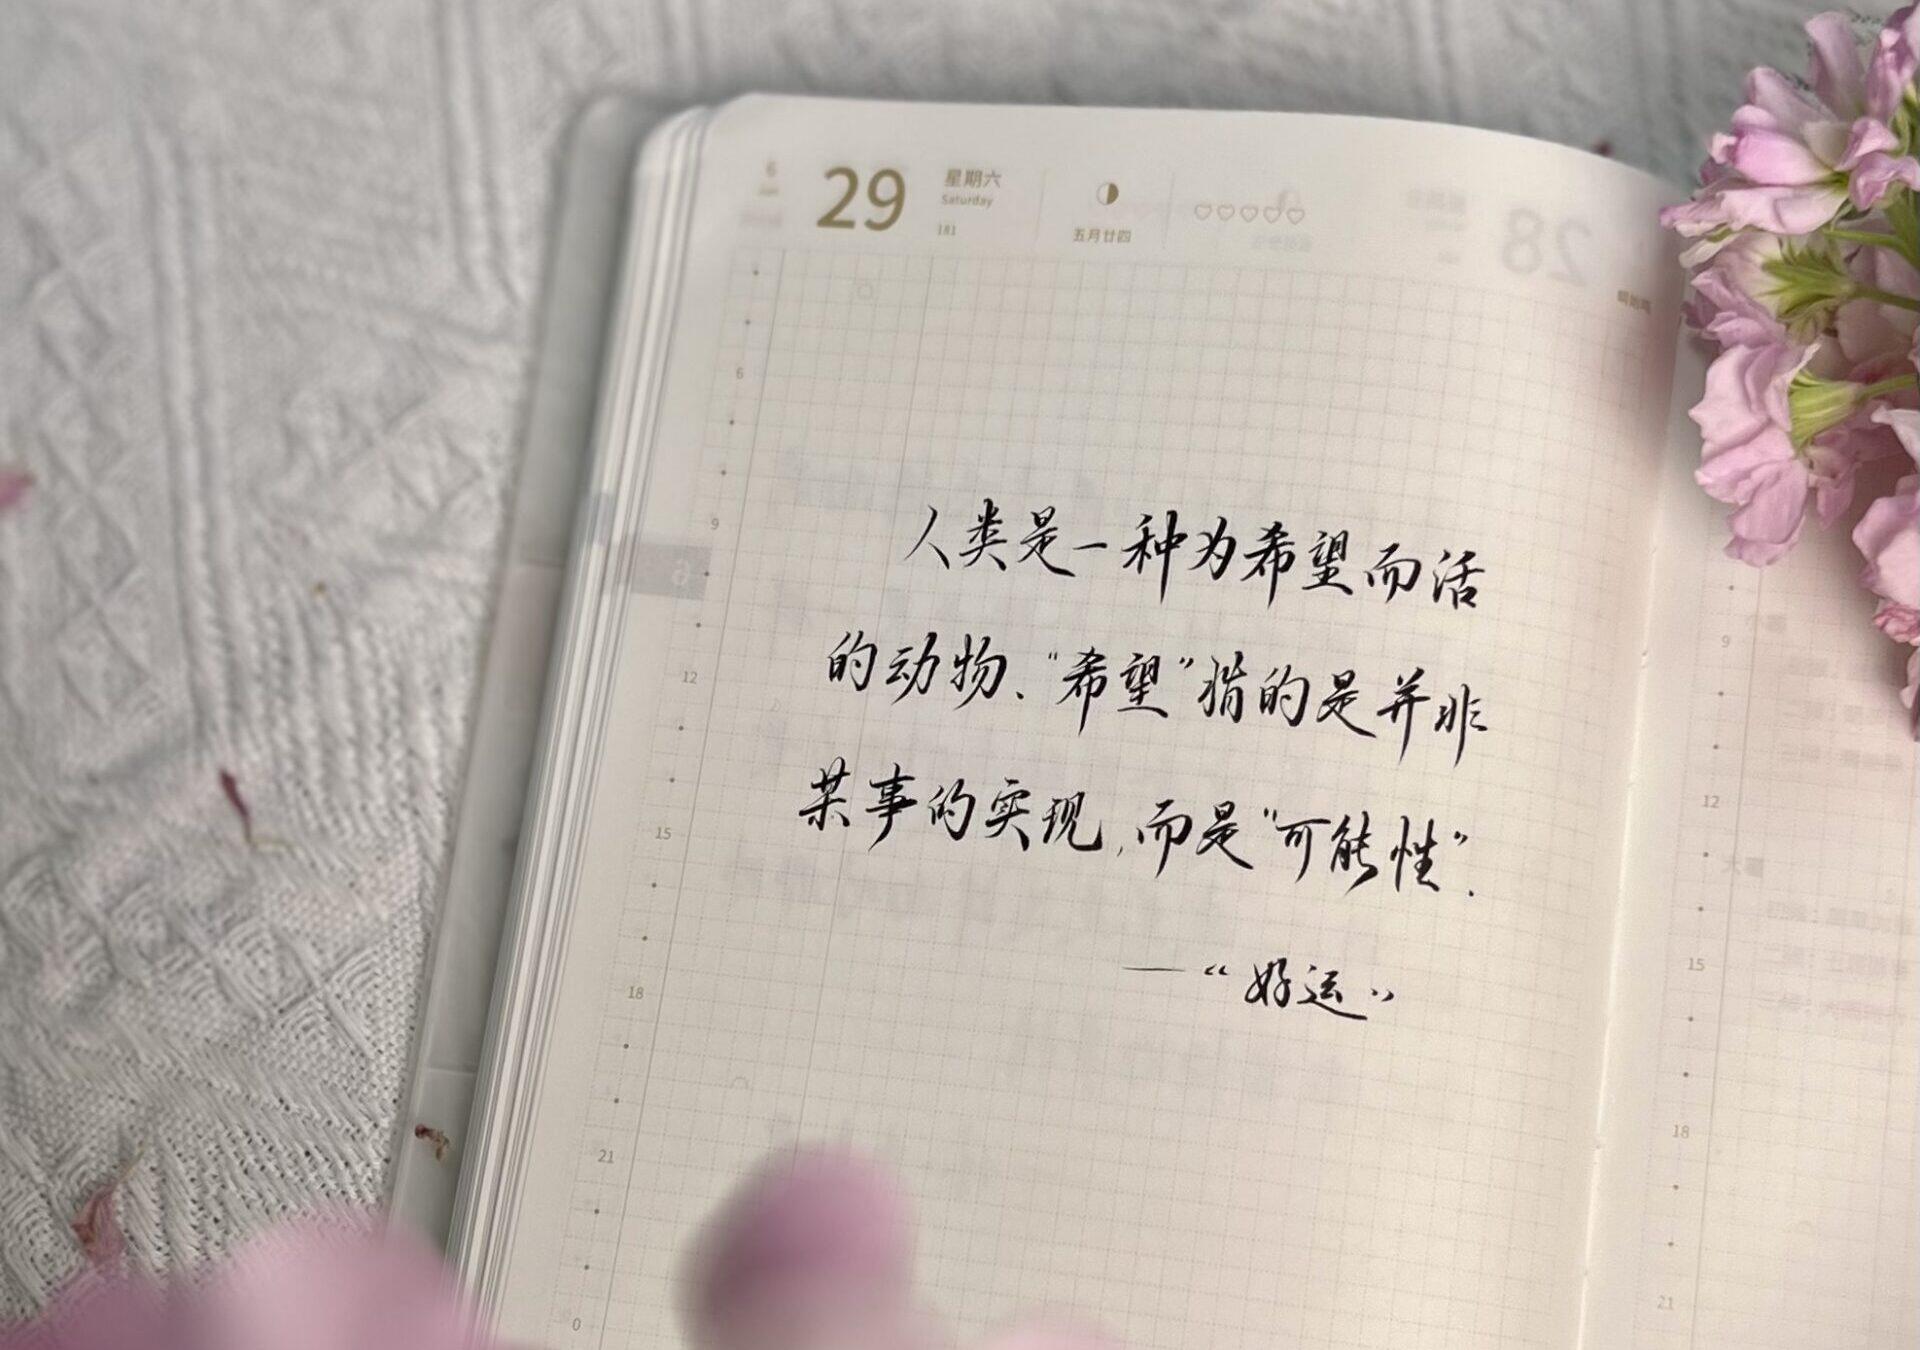 6
29
星期六
Saturday
181
五月廿四
6
9
12
15
18
21
0
人类是一种为希望而活
的动物、“希望”指的是并非
某事的实现,而是“可能性”.
—“好运”
9
12
15
18
21